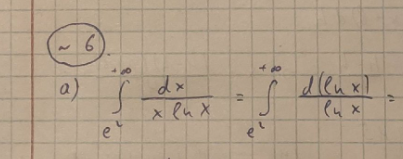 ~ 6.
а) ∫_{e²}^{+∞} dx / (x ln x) = ∫_{e²}^{+∞} d(ln x) / ln x =